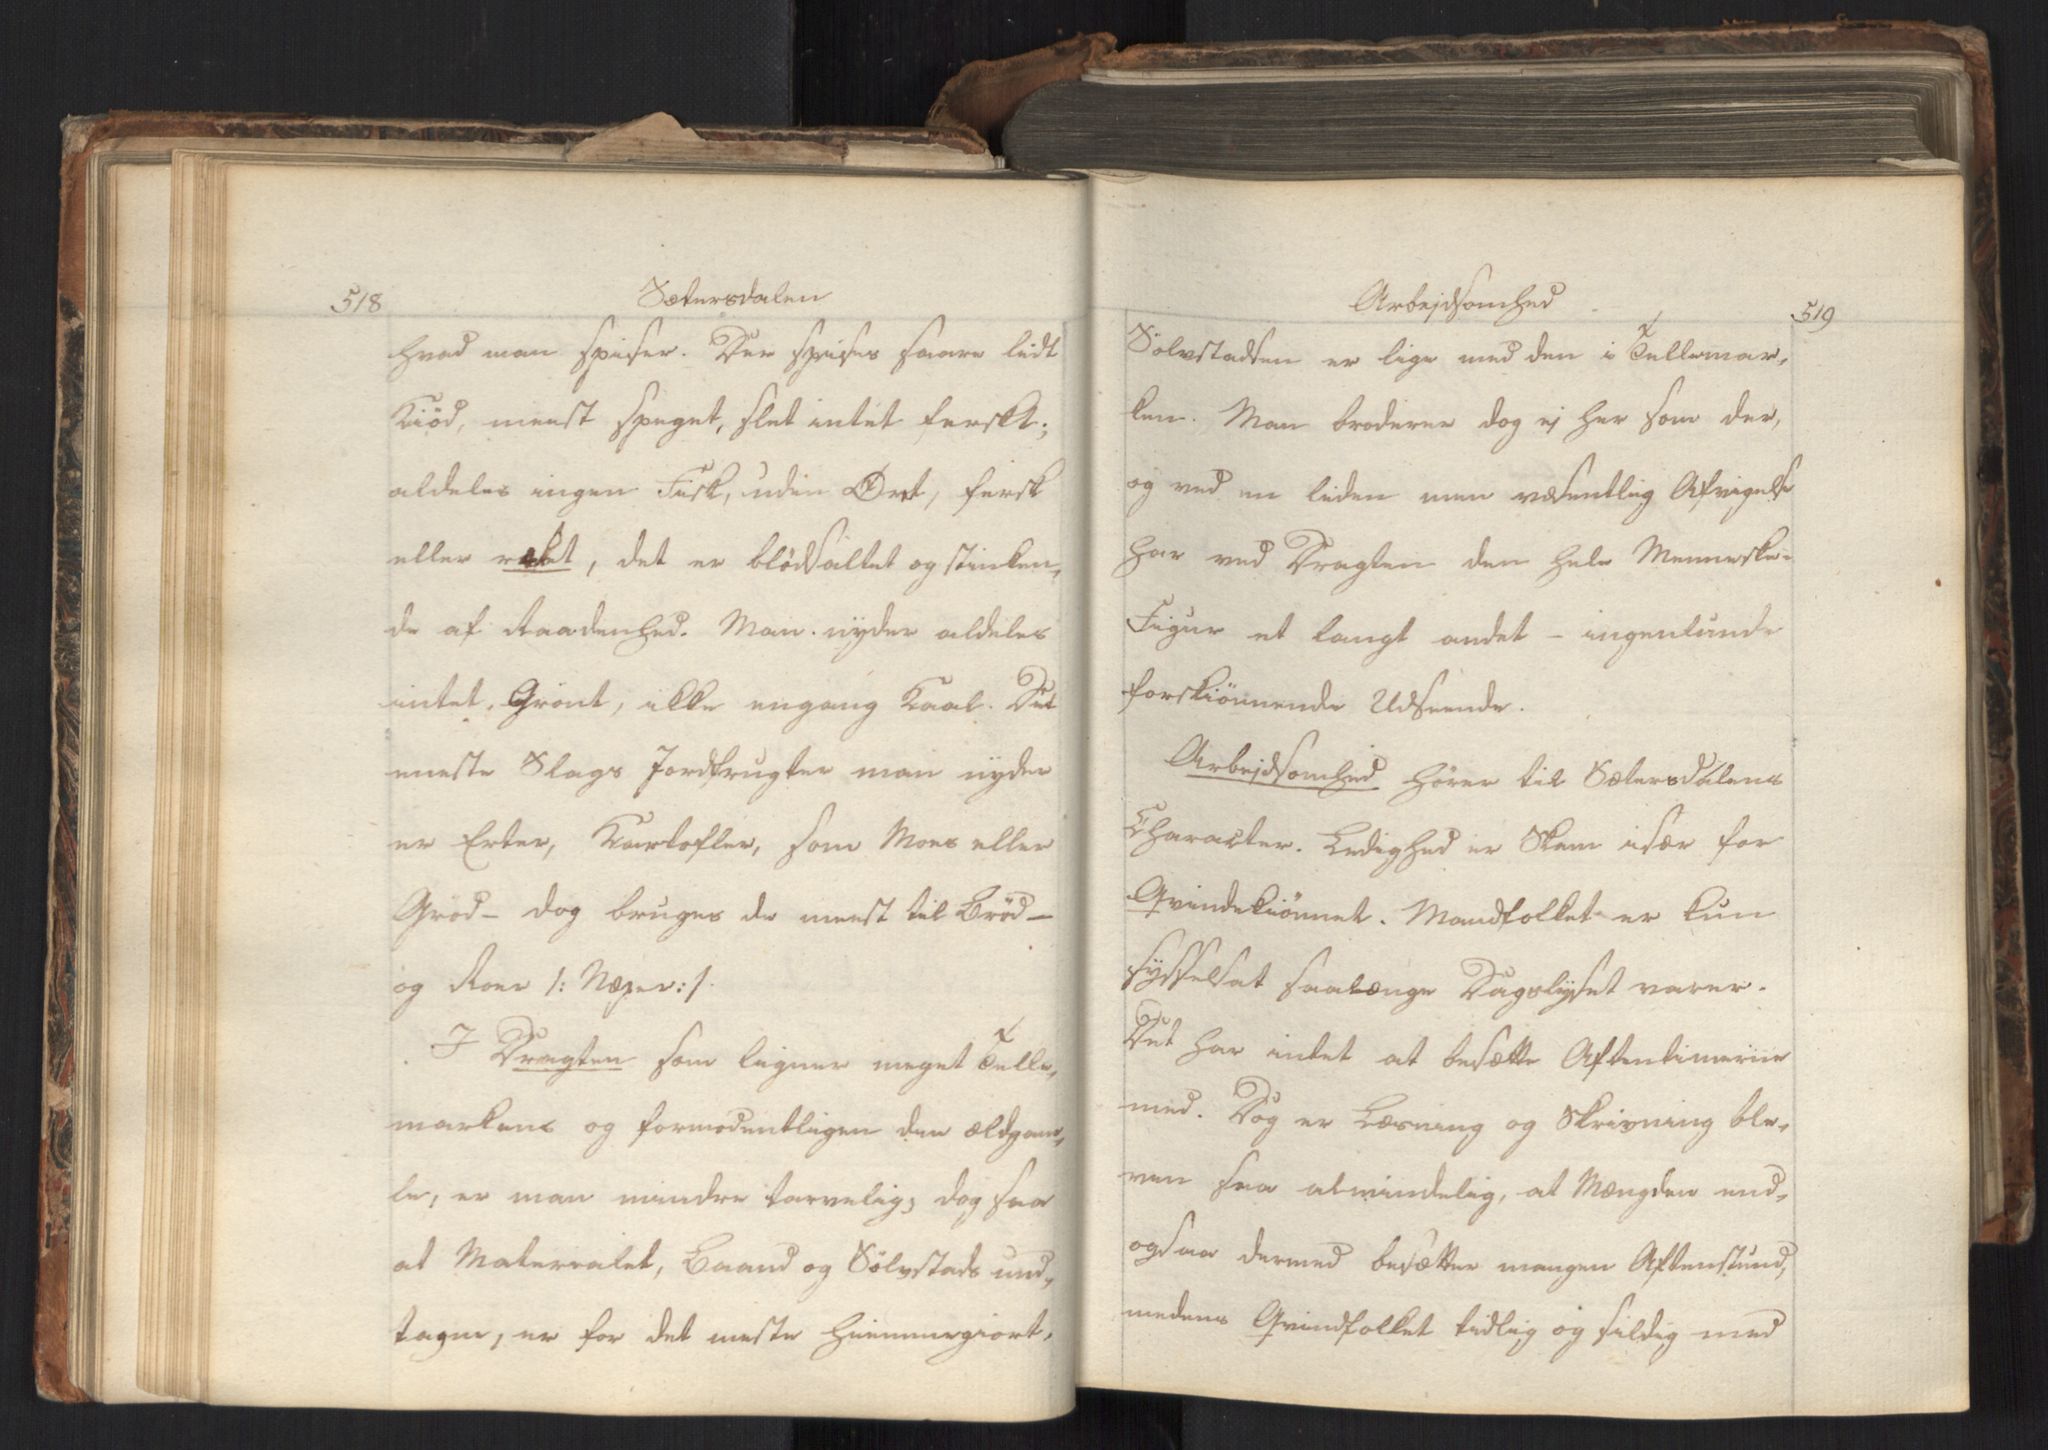 518
Sætersdalen
hvad man spiser. Der spises saare lidt
Kiød, meest speget, slet intet ferskt;
aldeles ingen Fisk, uden Ørret, fersk
eller raket, det er blødsaltet og stinken,
de af Raadenhed. Man nyder aldeles
intet Grønt, ikke engang Kaal. Det
meeste Slags Jordfrugter man nyder
er Erter, Kartofler, som Moes eller
Grød – dog bruges de meest til Brød –
og Roer /: Næper :/.
I Dragten som ligner meget Telle,
markens og formodentligen den ældgam,
le, er man mindre tarvelig; dog saa
at Materialet, Baand og Sölvstads und,
tagne, er for det meste hiemmegiort.
Arbejdsomhed
519
Sölvstadsen er lige med den i Tellemar,
ken. Man broderer dog ej her som der,
og ved en liden men væsentlig Afvigelse
har ved Dragten den hele Menneske-
Figur et langt andet – ingenlunde
forskiönnende Udseende.
Arbejdsomhed hörer til Sætersdalens
Character. Ledighed er Skam især for
Qvindekiönnet. Mandfolket er kun
sysselsat saalænge Dagslyset varer.
Det har intet at besætte Aftentimerne
med. Dog er Læsning og Skrivning ble,
ven saa almindelig, at Mængden end,
ogsaa dermed besætter mangen Aftenstund,
medens Qvindfolket tidlig og sildig med